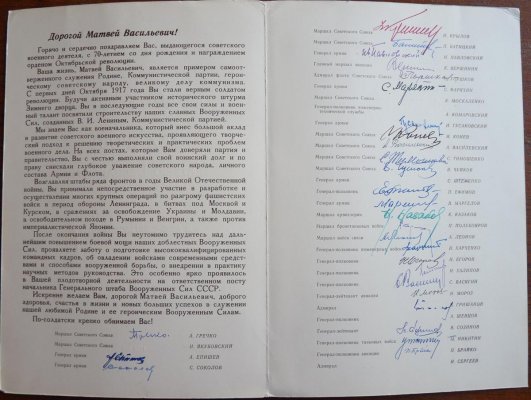 Дорогой Матвей Васильевич!
Горячо и сердечно поздравляем Вас, выдающегося советского
военного деятеля, с 70-летием со дня рождения и награждением
орденом Октябрьской революции.
Ваша жизнь, Матвей Васильевич, является примером самоот-
верженного служения Родине, Коммунистической партии, герои-
ческому советскому народу, великому делу коммунизма.
С первых дней Октября 1917 года Вы стали верным солдатом
революции. Будучи активным участником исторического штурма
Зимнего дворца, Вы и в последующие годы все свои силы и воен-
ный талант посвятили строительству наших славных Вооружен-
ных Сил, созданных В. И. Лениным, Коммунистической партией.
Мы знаем Вас как военачальника, который внес большой вклад
в развитие советского военного искусства, проявляющего творче-
ский подход к решению теоретических и практических проблем
военного дела. На всех постах, которые Вам доверяли партия и
правительство, Вы с честью выполняли свой воинский долг и по
праву снискали глубокое уважение советского народа, личного
состава Армии и Флота.
Возглавляя штабы ряда фронтов в годы Великой Отечественной
войны, Вы принимали непосредственное участие в разработке и
осуществлении многих крупных операций по разгрому фашистских
войск в период обороны Ленинграда, в битвах под Москвой и
Курском, в сражениях за освобождение Украины и Молдавии,
в освободительном походе в Румынии и Венгрии, а также против
империалистической Японии.
После окончания войны Вы неутомимо трудитесь над даль-
нейшим повышением боевой мощи наших доблестных Вооруженных
Сил, проявляете заботу о подготовке высококвалифицированных
командных кадров, об овладении войсками современными средст-
вами и способами вооруженной борьбы, о внедрении в практику
научных методов руководства. Это особенно ярко проявилось
в Вашей плодотворной деятельности на ответственном посту
начальника Генерального штаба Вооруженных Сил СССР.
Искренне желаем Вам, дорогой Матвей Васильевич, доброго
здоровья, счастья в жизни и новых больших успехов в служении
нашей любимой Родине и ее героическим Вооруженным Силам.
По-солдатски крепко обнимаем Вас!
Маршал Советского Союза А. ГРЕЧКО
Маршал Советского Союза И. ЯКУБОВСКИЙ
Генерал армии А. ЕПИШЕВ
Генерал армии С. СОКОЛОВ
Маршал Советского Союза Н. КРЫЛОВ
Маршал Советского Союза П. БАТИЦКИЙ
Генерал армии И. ПАВЛОВСКИЙ
Главный маршал авиации
Адмирал флота Советского Союза С. ГОРШКОВ
Генерал армии С. МАРЯХИН
Маршал Советского Союза К. МОСКАЛЕНКО
Генерал-полковник инженерно-
технической службы А. КОМАРОВСКИЙ
Генерал армии
Маршал Советского Союза И. КОНЕВ
Маршал Советского Союза А. ВАСИЛЕВСКИЙ
Маршал Советского Союза С. ТИМОШЕНКО
Маршал Советского Союза В. ЧУЙКОВ
Генерал армии С. ШТЕМЕНКО
Генерал-полковник П. ЕФИМОВ
Генерал армии
Маршал артиллерии К. КАЗАКОВ
Маршал бронетанковых войск П. ПОЛУБОЯРОВ
Маршал войск связи А. ЛЕОНОВ
Генерал-полковник В. ХАРЧЕНКО
Генерал-полковник Н. ЕГОРОВ
Генерал-полковник
Генерал-полковник С. ВАСЯГИН
Генерал-лейтенант авиации И. МОРОЗ
Адмирал
Генерал-полковник А. ШЕВЦОВ
Генерал-лейтенант
Генерал-полковник танковых войск П. НИКИТИН
Генерал-полковник
Адмирал Н. СЕРГЕЕВ